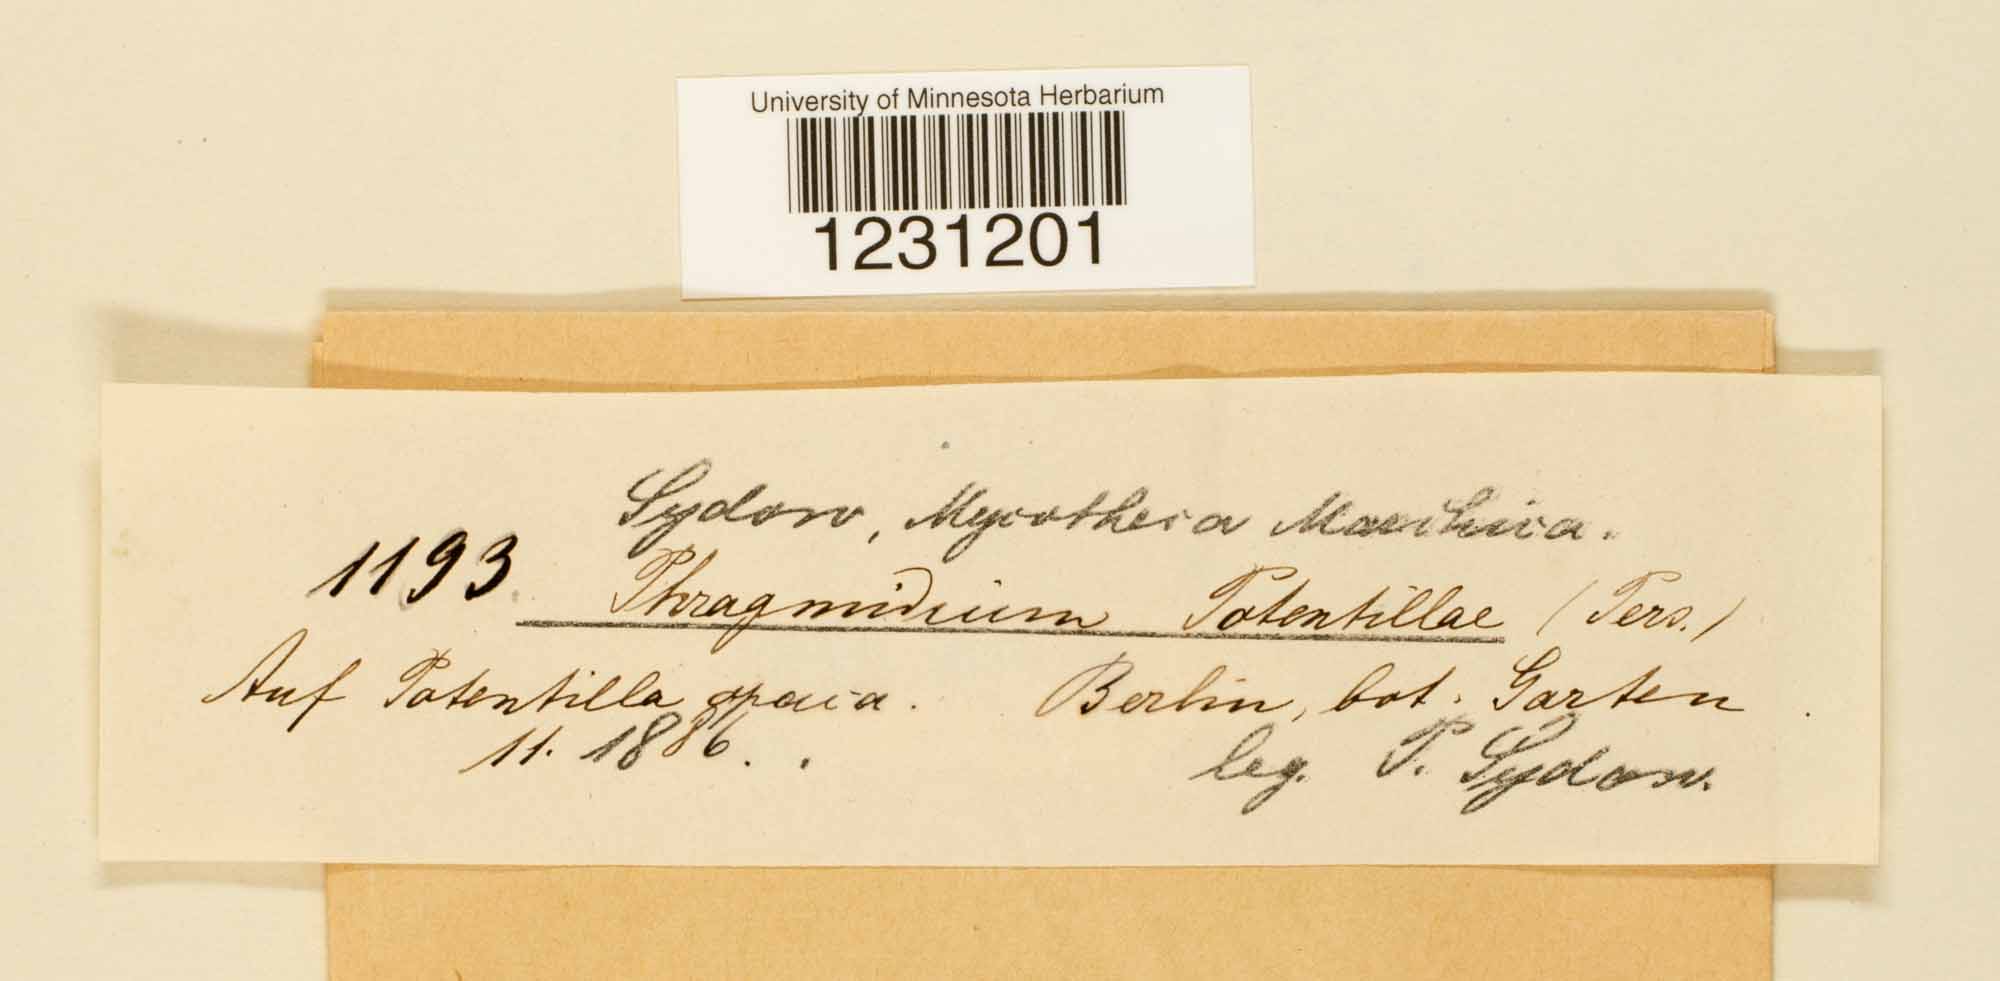 University of Minnesota Herbarium
1231201
Sydow, Mycotheca Marchica.
1193. Phragmidium Potentillae (Pers.)
Auf Potentilla opaca. Berlin, bot. Garten.
11. 1886. leg. P. Sydow.